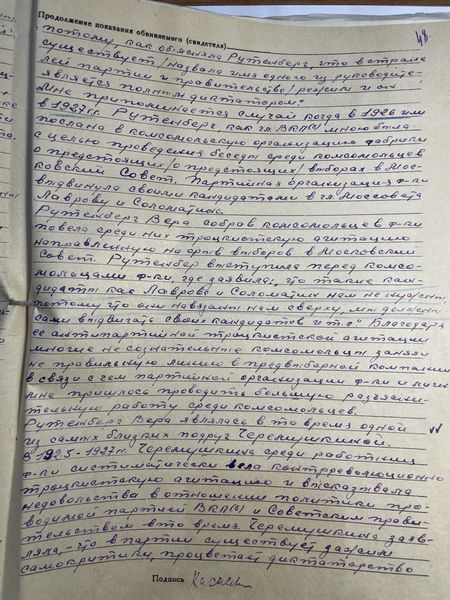 Продолжение показания обвиняемого (свидетеля)
48
потому, как объясняла Рутенберг, что в стране
существует /назвала имя одного из руководите-
лей партии и правительства/ режим и он
является полным диктатором."
Мне припоминается случай когда в 1926 или
в 1927 г. Рутенберг, как чл. ВКП(б) мною была
послана в комсомольскую организацию фабрики
с целью проведения беседы среди комсомольцев
о предстоящих /о предстоящих/ выборах в Мос-
ковский Совет. Партийная организация ф-ки
выдвинула своими кандидатами в чл. Моссовета
Лаврову и Соломатино.
Рутенберг Вера собрав комсомольцев ф-ки
повела среди них троцкистскую агитацию
направленную на срыв выборов в Московский
Совет. Рутенберг выступила перед комсо-
мольцами ф-ки где заявила: что такие кан-
дидаты как Лаврова и Соломатин нам не нужны,
потому что они навязаны нам сверху, мы должны
сами выдвигать своих кандидатов и т.п." Благодаря
ее антипартийной троцкистской агитации
многие не сознательные комсомольцы заняли
не правильную линию в предвыборной компании
в связи с чем партийной организации ф-ки и лично
мне пришлось проводить большую разъясни-
тельную работу среди комсомольцев.
Рутенберг Вера являлась в то время одной
из самых близких подруг Черемушкиной.
В 1925-1927 г. Черемушкина среди работниц
ф-ки систиматически вела контрреволюционно
троцкистскую агитацию и высказывала
недовольства в отношении политики про-
водимой партией ВКП(б) и Советским прави-
тельством в то время. Черемушкина заяв-
ляла, - что в партии существует зажим
самокритики, процветает диктаторство
Подпись